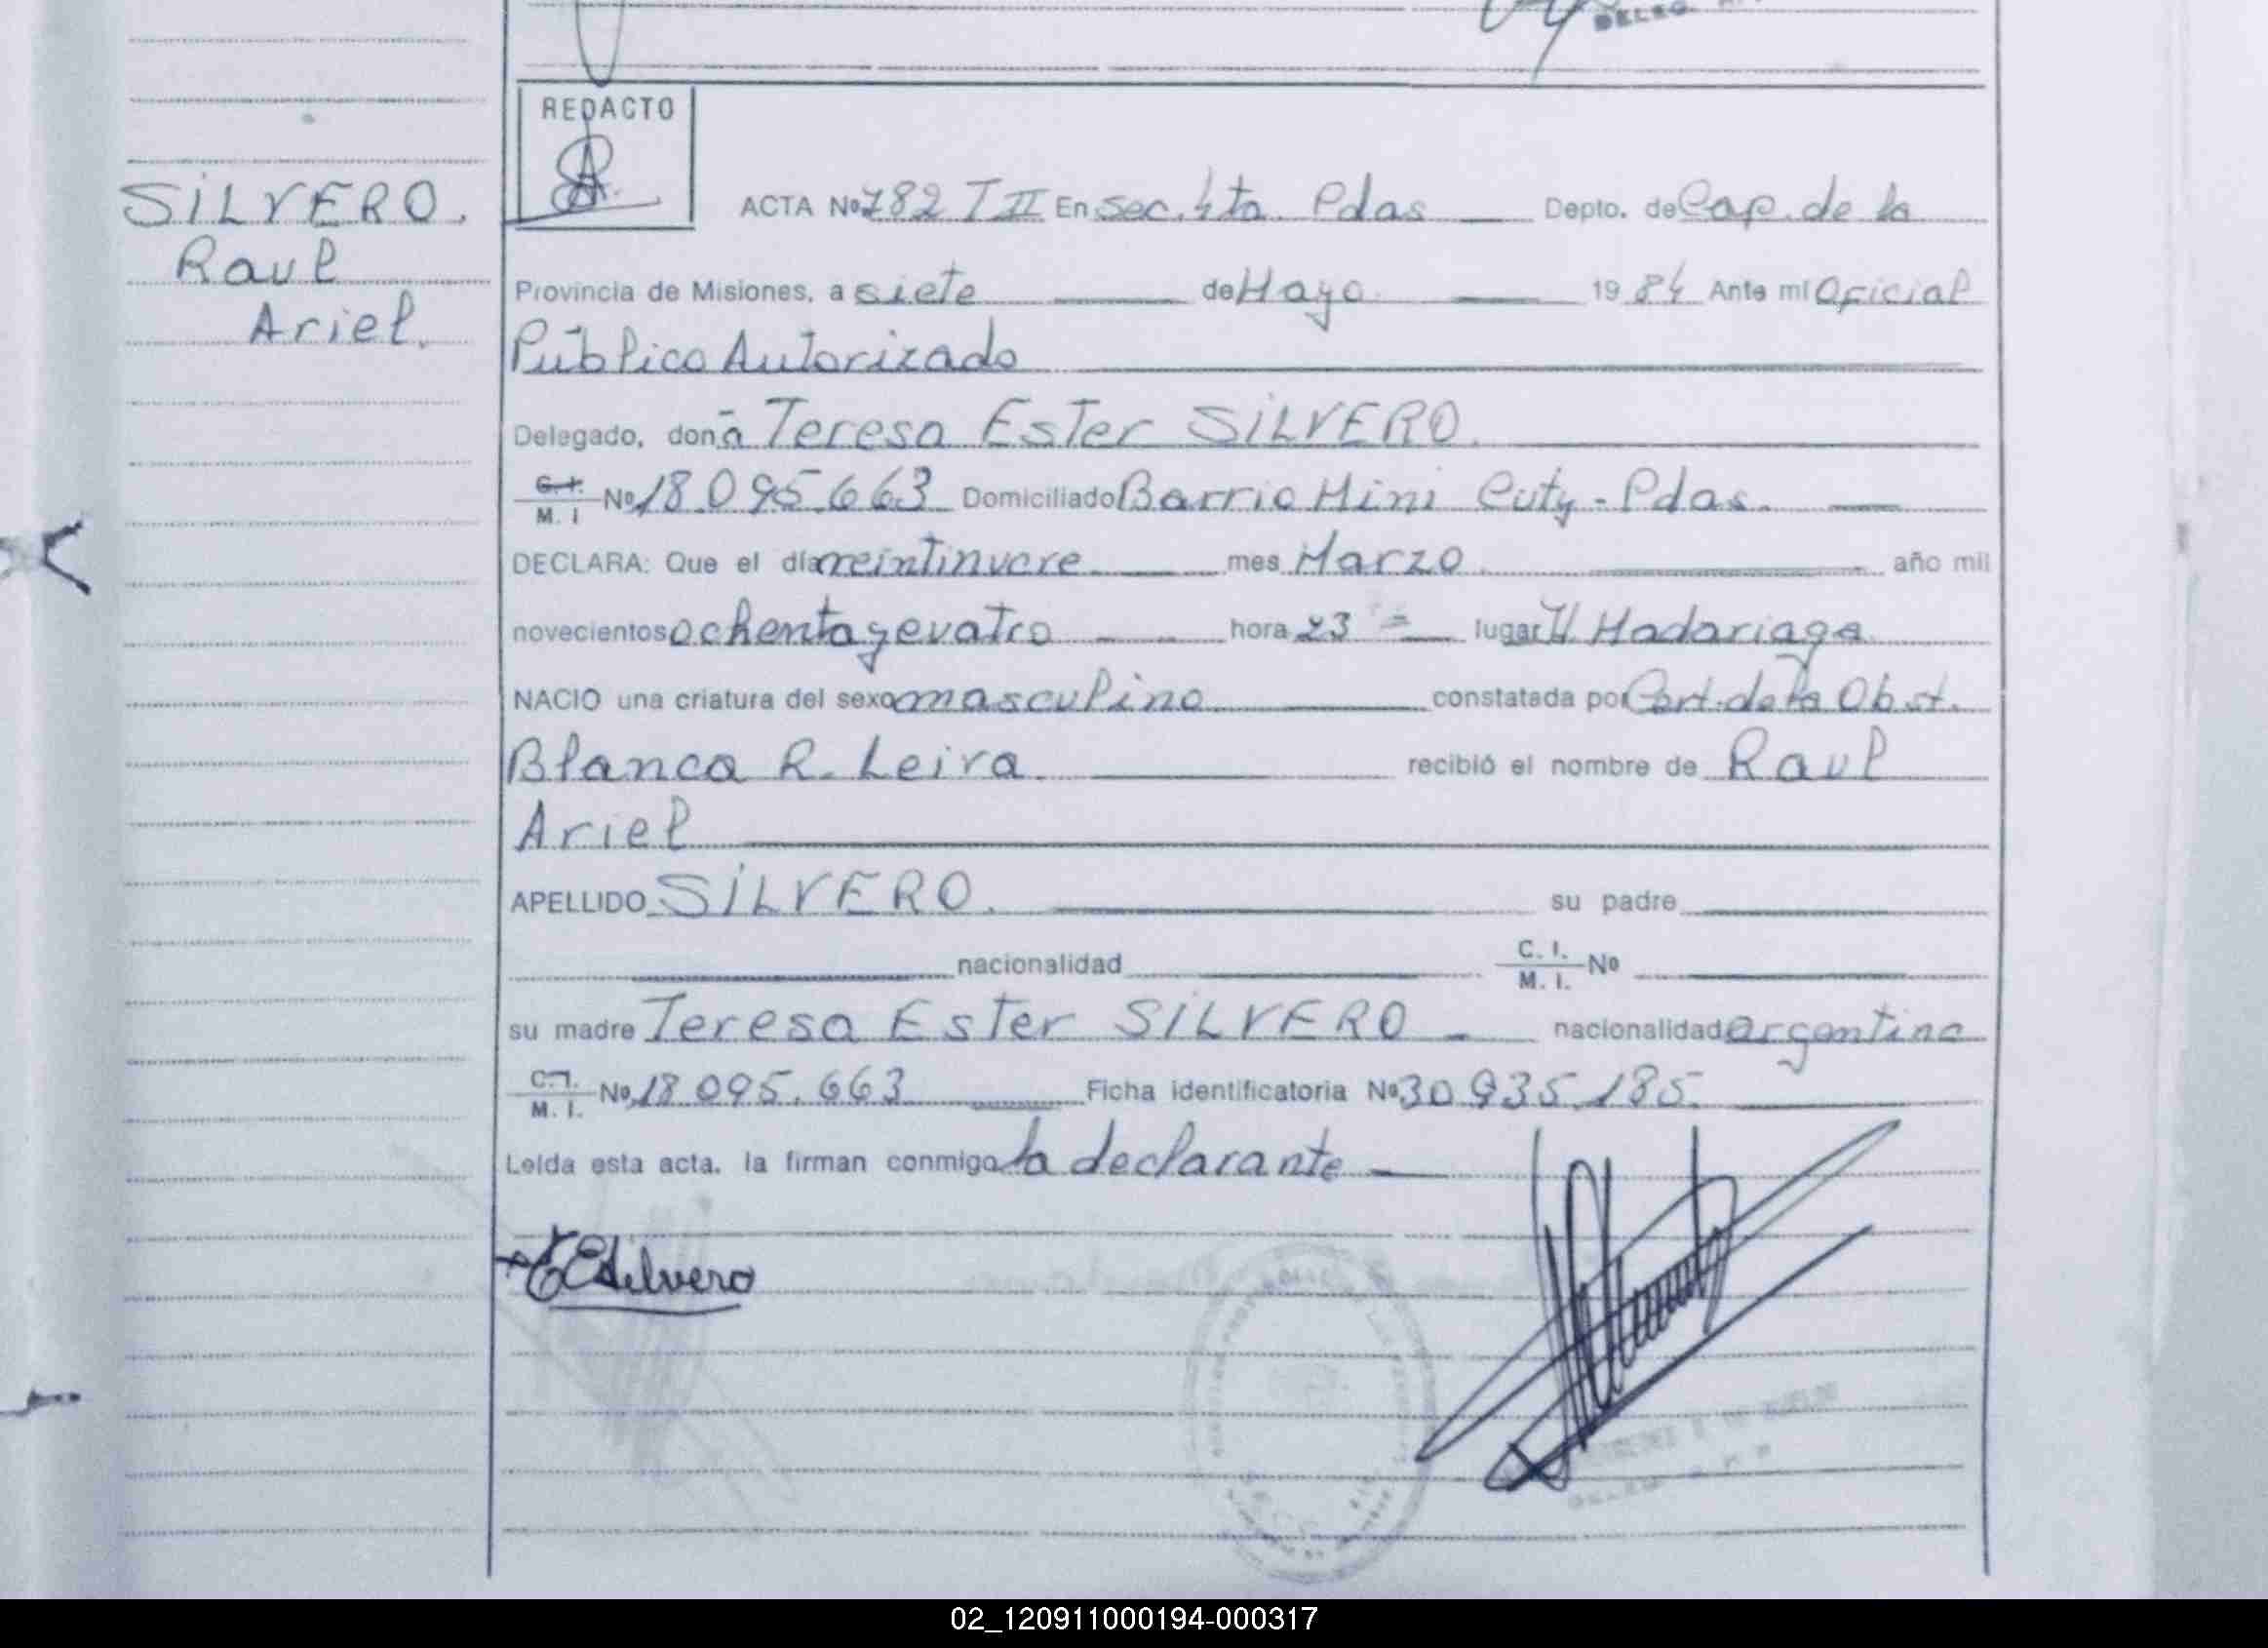 DELEG.
REDACTO
SILVERO.
Raul
Ariel.
ACTA Nº 782 T II En Sec. 4ta. Pdas Depto. de Cap. de la
Provincia de Misiones, a siete de Mayo 1984 Ante mi Oficial
Público Autorizado
Delegado, doña Teresa Ester SILVERO.
C.I. M. I Nº 18.095.663 Domiciliado Barrio Mini City - Pdas.
DECLARA: Que el día veintinueve mes Marzo año mil
novecientos ochenta y cuatro hora 23 lugar H Madariaga
NACIO una criatura del sexo masculino constatada por Cert. de la Obst.
Blanca R. Leiva recibió el nombre de Raul
Ariel
APELLIDO SILVERO. su padre
nacionalidad C. I. M. I. Nº
su madre Teresa Ester SILVERO nacionalidad argentina
C.I. M. I. Nº 18.095.663 Ficha identificatoria Nº 30.935.185.
Leída esta acta, la firman conmigo la declarante
TESilvero
02_120911000194-000317